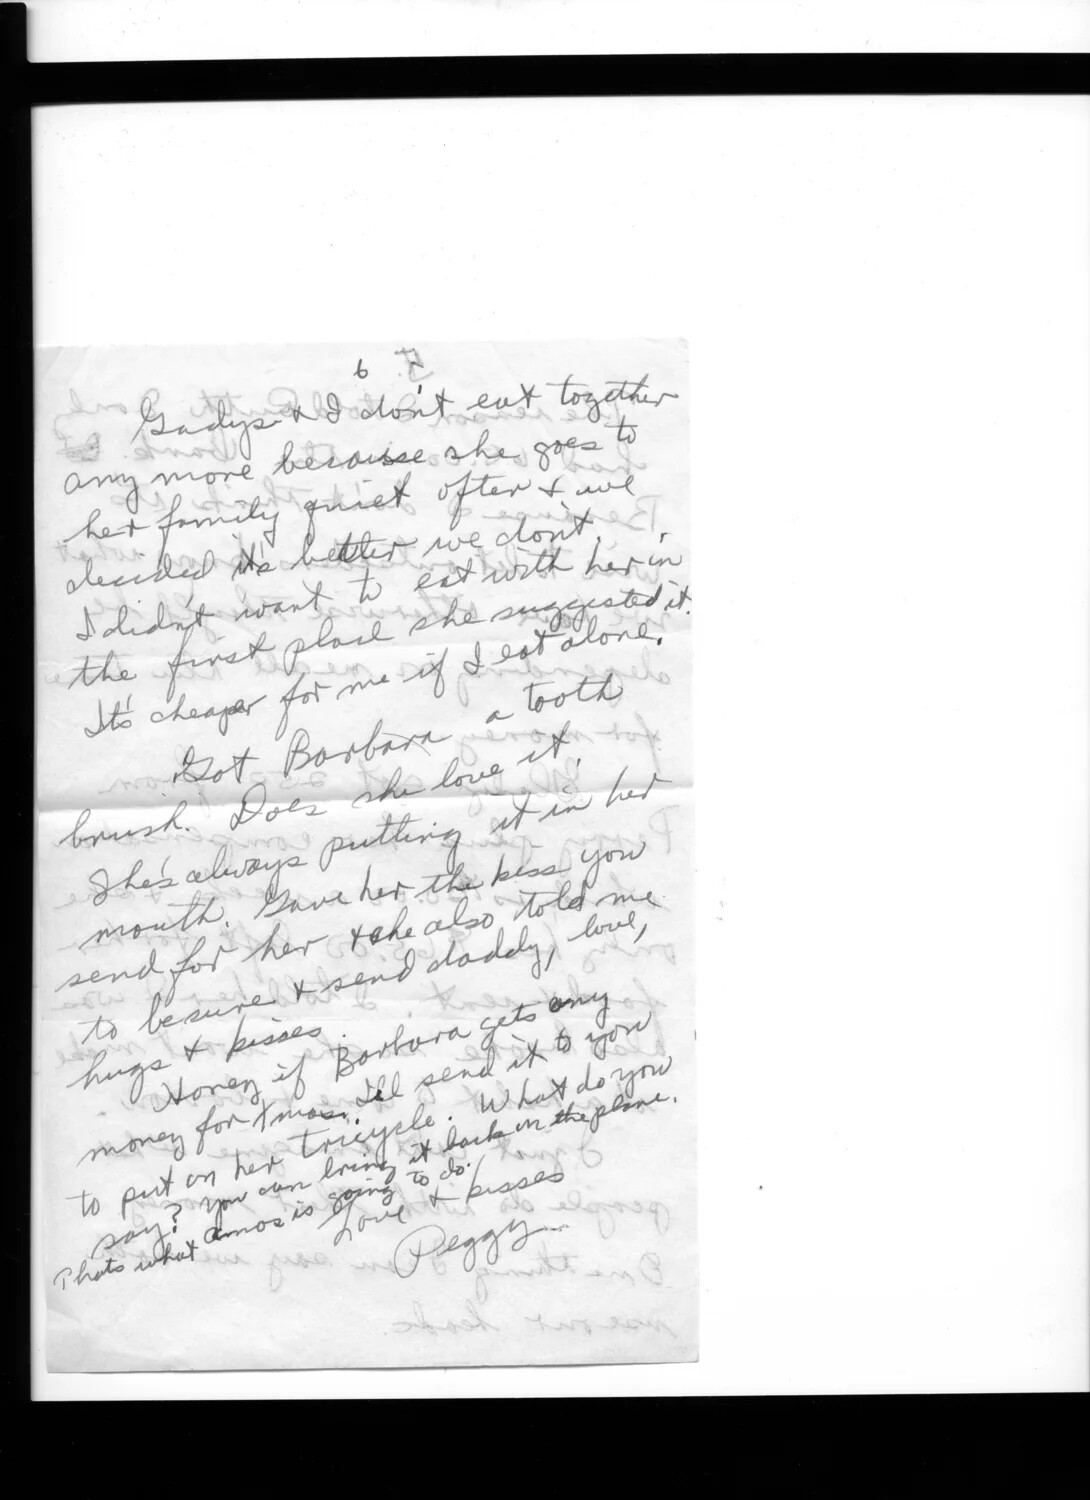 6
Gadys & I don't eat together
any more because she goes to
her family quiet often & we
decided it's better we don't.
I didn't want to eat with her in
the first place she suggested it.
It's cheaper for me if I eat alone.
Got Barbara a tooth
brush. Does she love it.
She's always putting it in her
mouth. Gave her the kiss you
send for her & she also told me
to be sure & send daddy, love,
hugs & kisses.
Honey if Barbara gets any
money for Xmas. I'll send it to you
to put on her tricycle. What do you
say? You can bring it back on the plane.
Thats what amos is going to do.
Love & kisses
Peggy